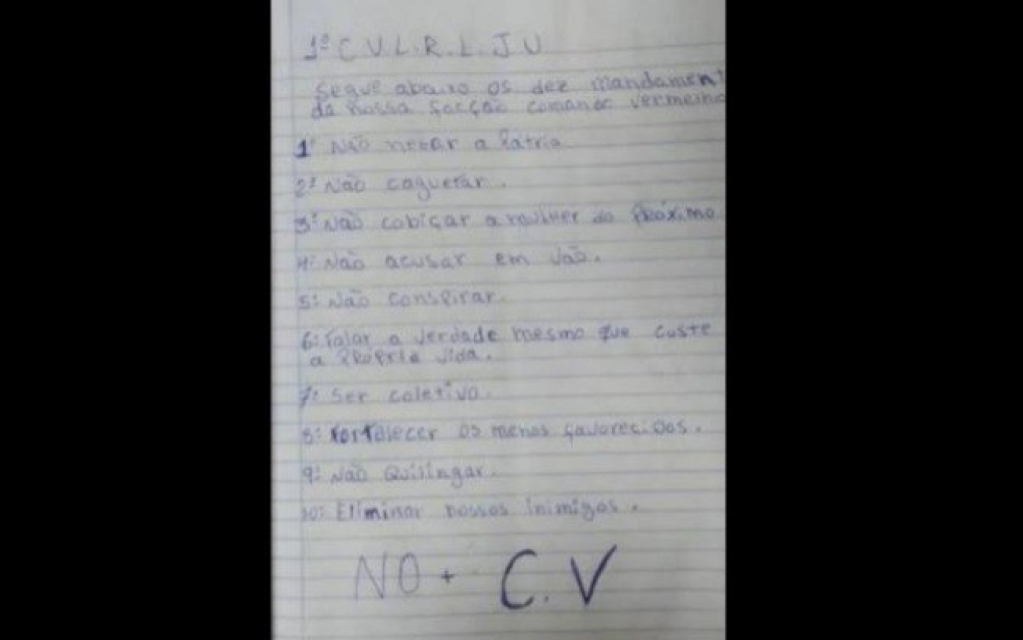 1º C V L. R. L. J U
Segue abaixo os dez mandamen
da nossa facção comando vermelho
1º Não negar a Pátria
2º Não caguetar.
3º Não cobiçar a mulher do Próximo
4º Não acusar em vão.
5º Não conspirar.
6º Falar a verdade mesmo que custe
a PRÓPRIA vida.
7º Ser coletivo.
8º Fortalecer os menos favorecidos.
9º Não Quilingar.
10º Eliminar nossos inimigos.
NO + C.V